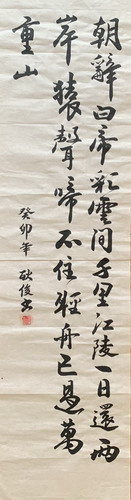 朝辭白帝彩雲間千里江陵一日還兩
岸猿聲啼不住輕舟已過萬
重山
癸卯年 俊書